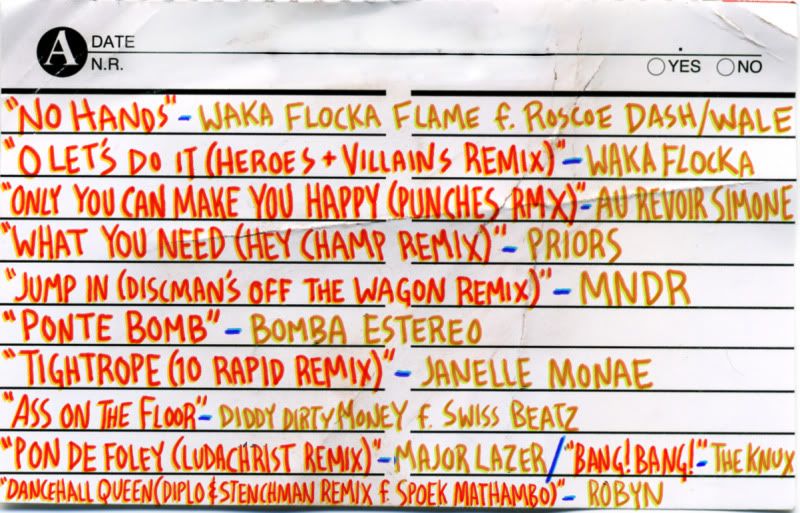 A DATE
N.R. YES NO
"NO HANDS" - WAKA FLOCKA FLAME f. ROSCOE DASH/WALE
"O LET'S DO IT (HEROES + VILLAINS REMIX)" - WAKA FLOCKA
"ONLY YOU CAN MAKE YOU HAPPY (PUNCHES RMX)" - AU REVOIR SIMONE
"WHAT YOU NEED (HEY CHAMP REMIX)" - PRIORS
"JUMP IN (DISCMAN'S OFF THE WAGON REMIX)" - MNDR
"PONTE BOMB" - BOMBA ESTEREO
"TIGHTROPE (10 RAPID REMIX)" - JANELLE MONAE
"ASS ON THE FLOOR" - DIDDY DIRTY MONEY f. SWISS BEATZ
"PON DE FOLEY (LUDACHRIST REMIX)" - MAJOR LAZER / "BANG! BANG!" - THE KNUX
"DANCEHALL QUEEN (DIPLO & STENCHMAN REMIX f. SPOEK MATHAMBO)" - ROBYN